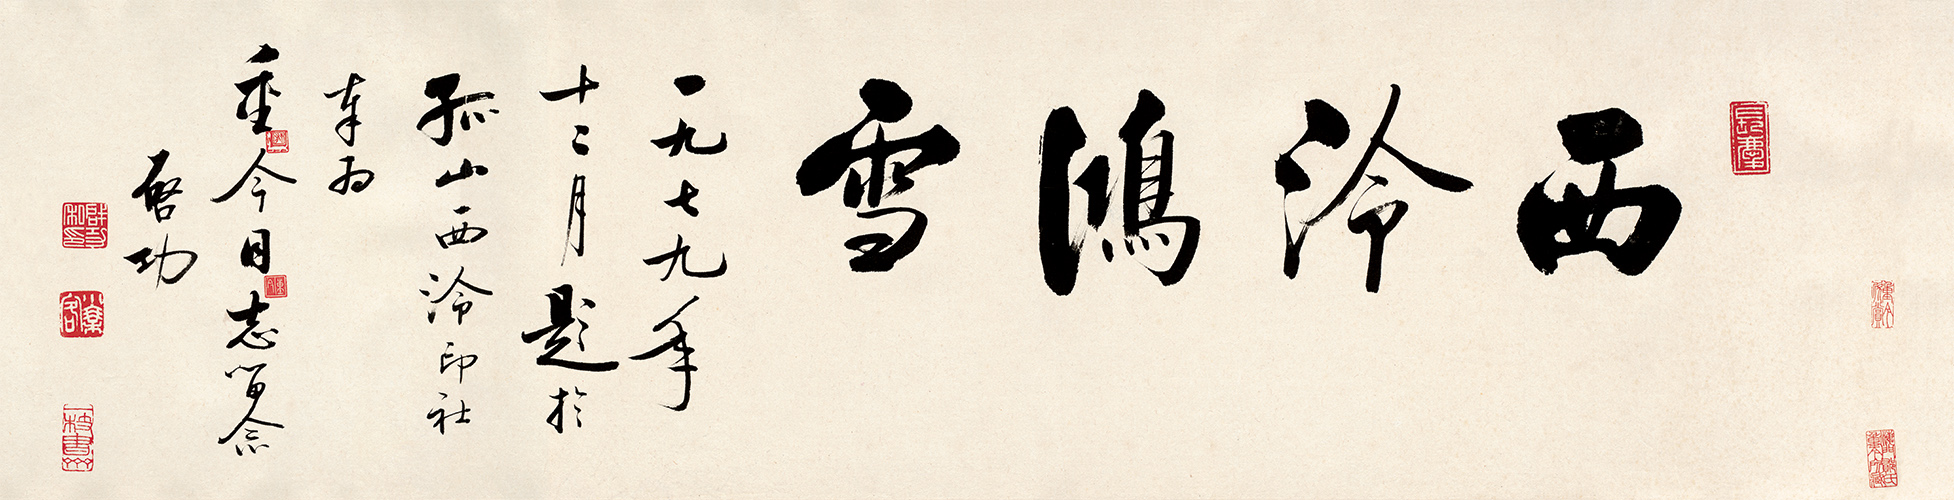 西泠鴻雪
一九七九年
十二月題於
孤山西泠印社
奉为
重今同志留念
啓功